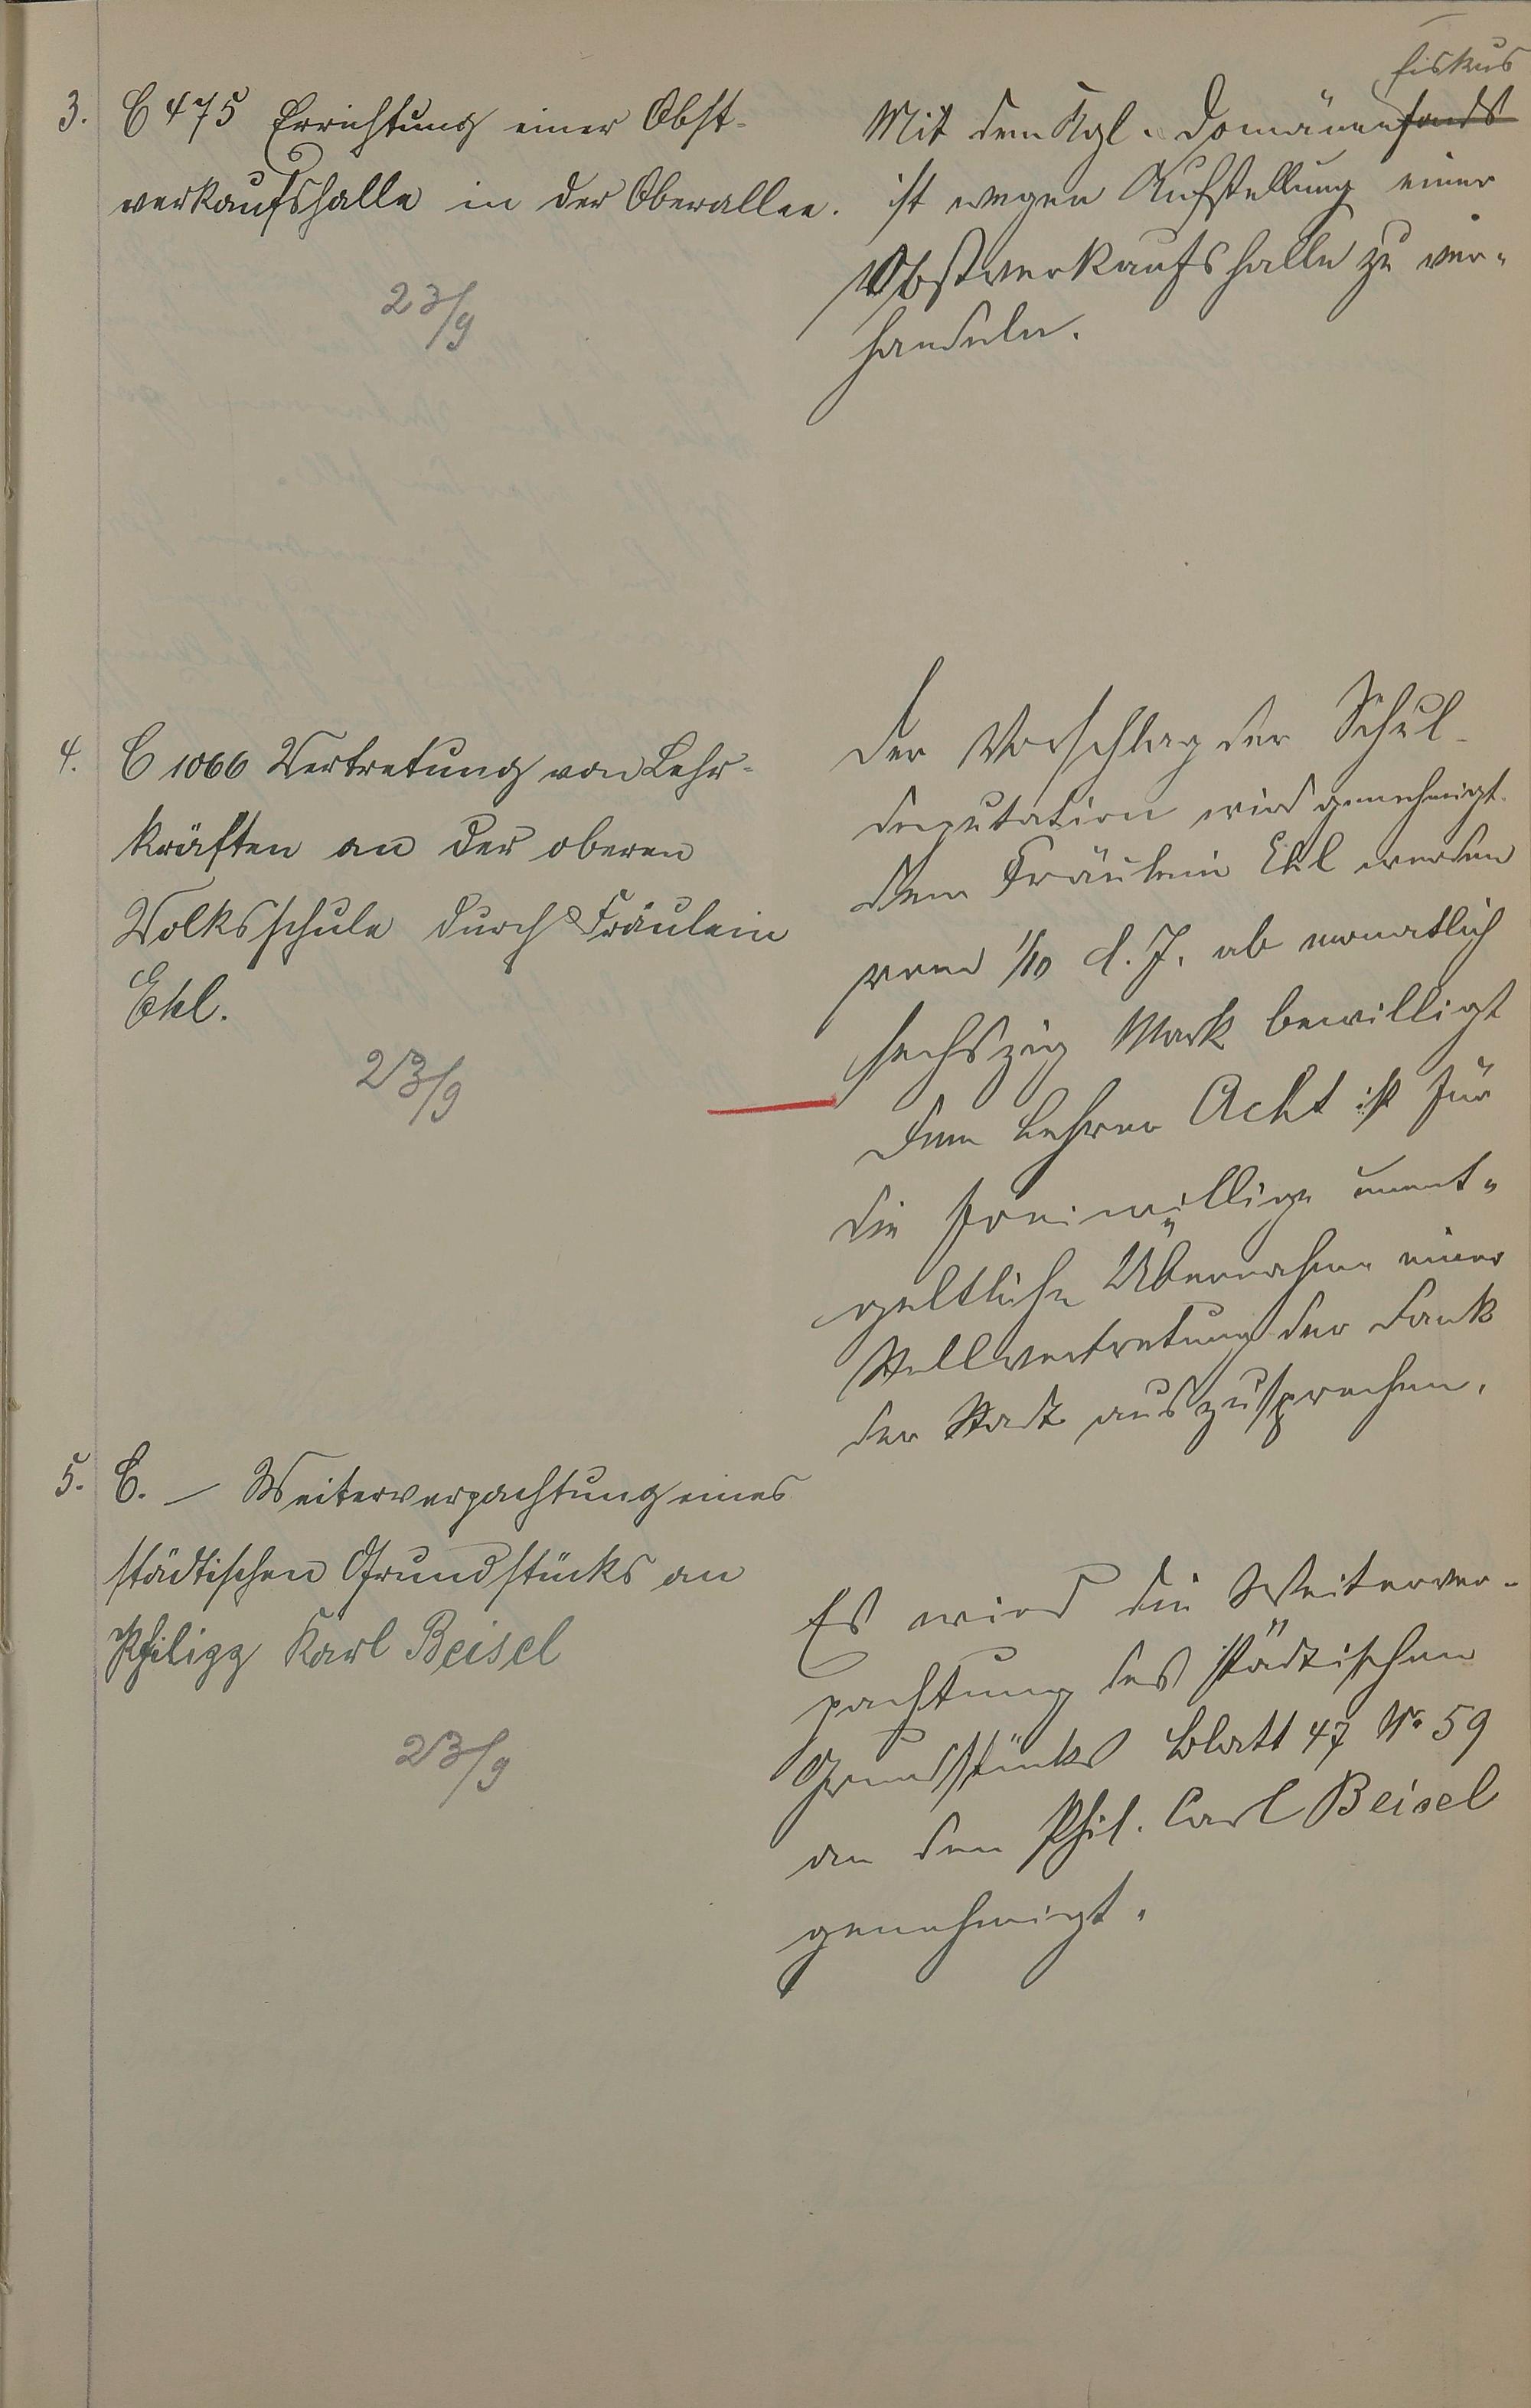 3. C 475 Errichtung einer Obst-
verkaufshalle in der Oberallee.
23/9
fiskus
Mit dem Kgl. Domänenfonds
ist wegen Aufstellung einer
Obstverkaufshalle zu ver-
handeln.
4. C 1066 Vertretung von Lehr-
kräften an der oberen
Volksschule durch Fräulein
Ekl.
23/9
Der Vorschlag der Schul-
deputation wird genehmigt.
Dem Fräulein Ekl werden
vom 1/10 d. J. ab monatlich
sechszig Mark bewilligt
Dem Lehrer Acht ist für
die freiwillige unent-
geltliche Übernahme einer
Stellvertretung der Dank
der Stadt auszusprechen.
5. C. – Weiterverpachtung eines
städtischen Grundstücks an
Philipp Karl Beisel
23/9
Es wird die Weiterver-
pachtung des städtischen
Grundstücks Blatt 47 No 59
an den Phil. Carl Beisel
genehmigt.